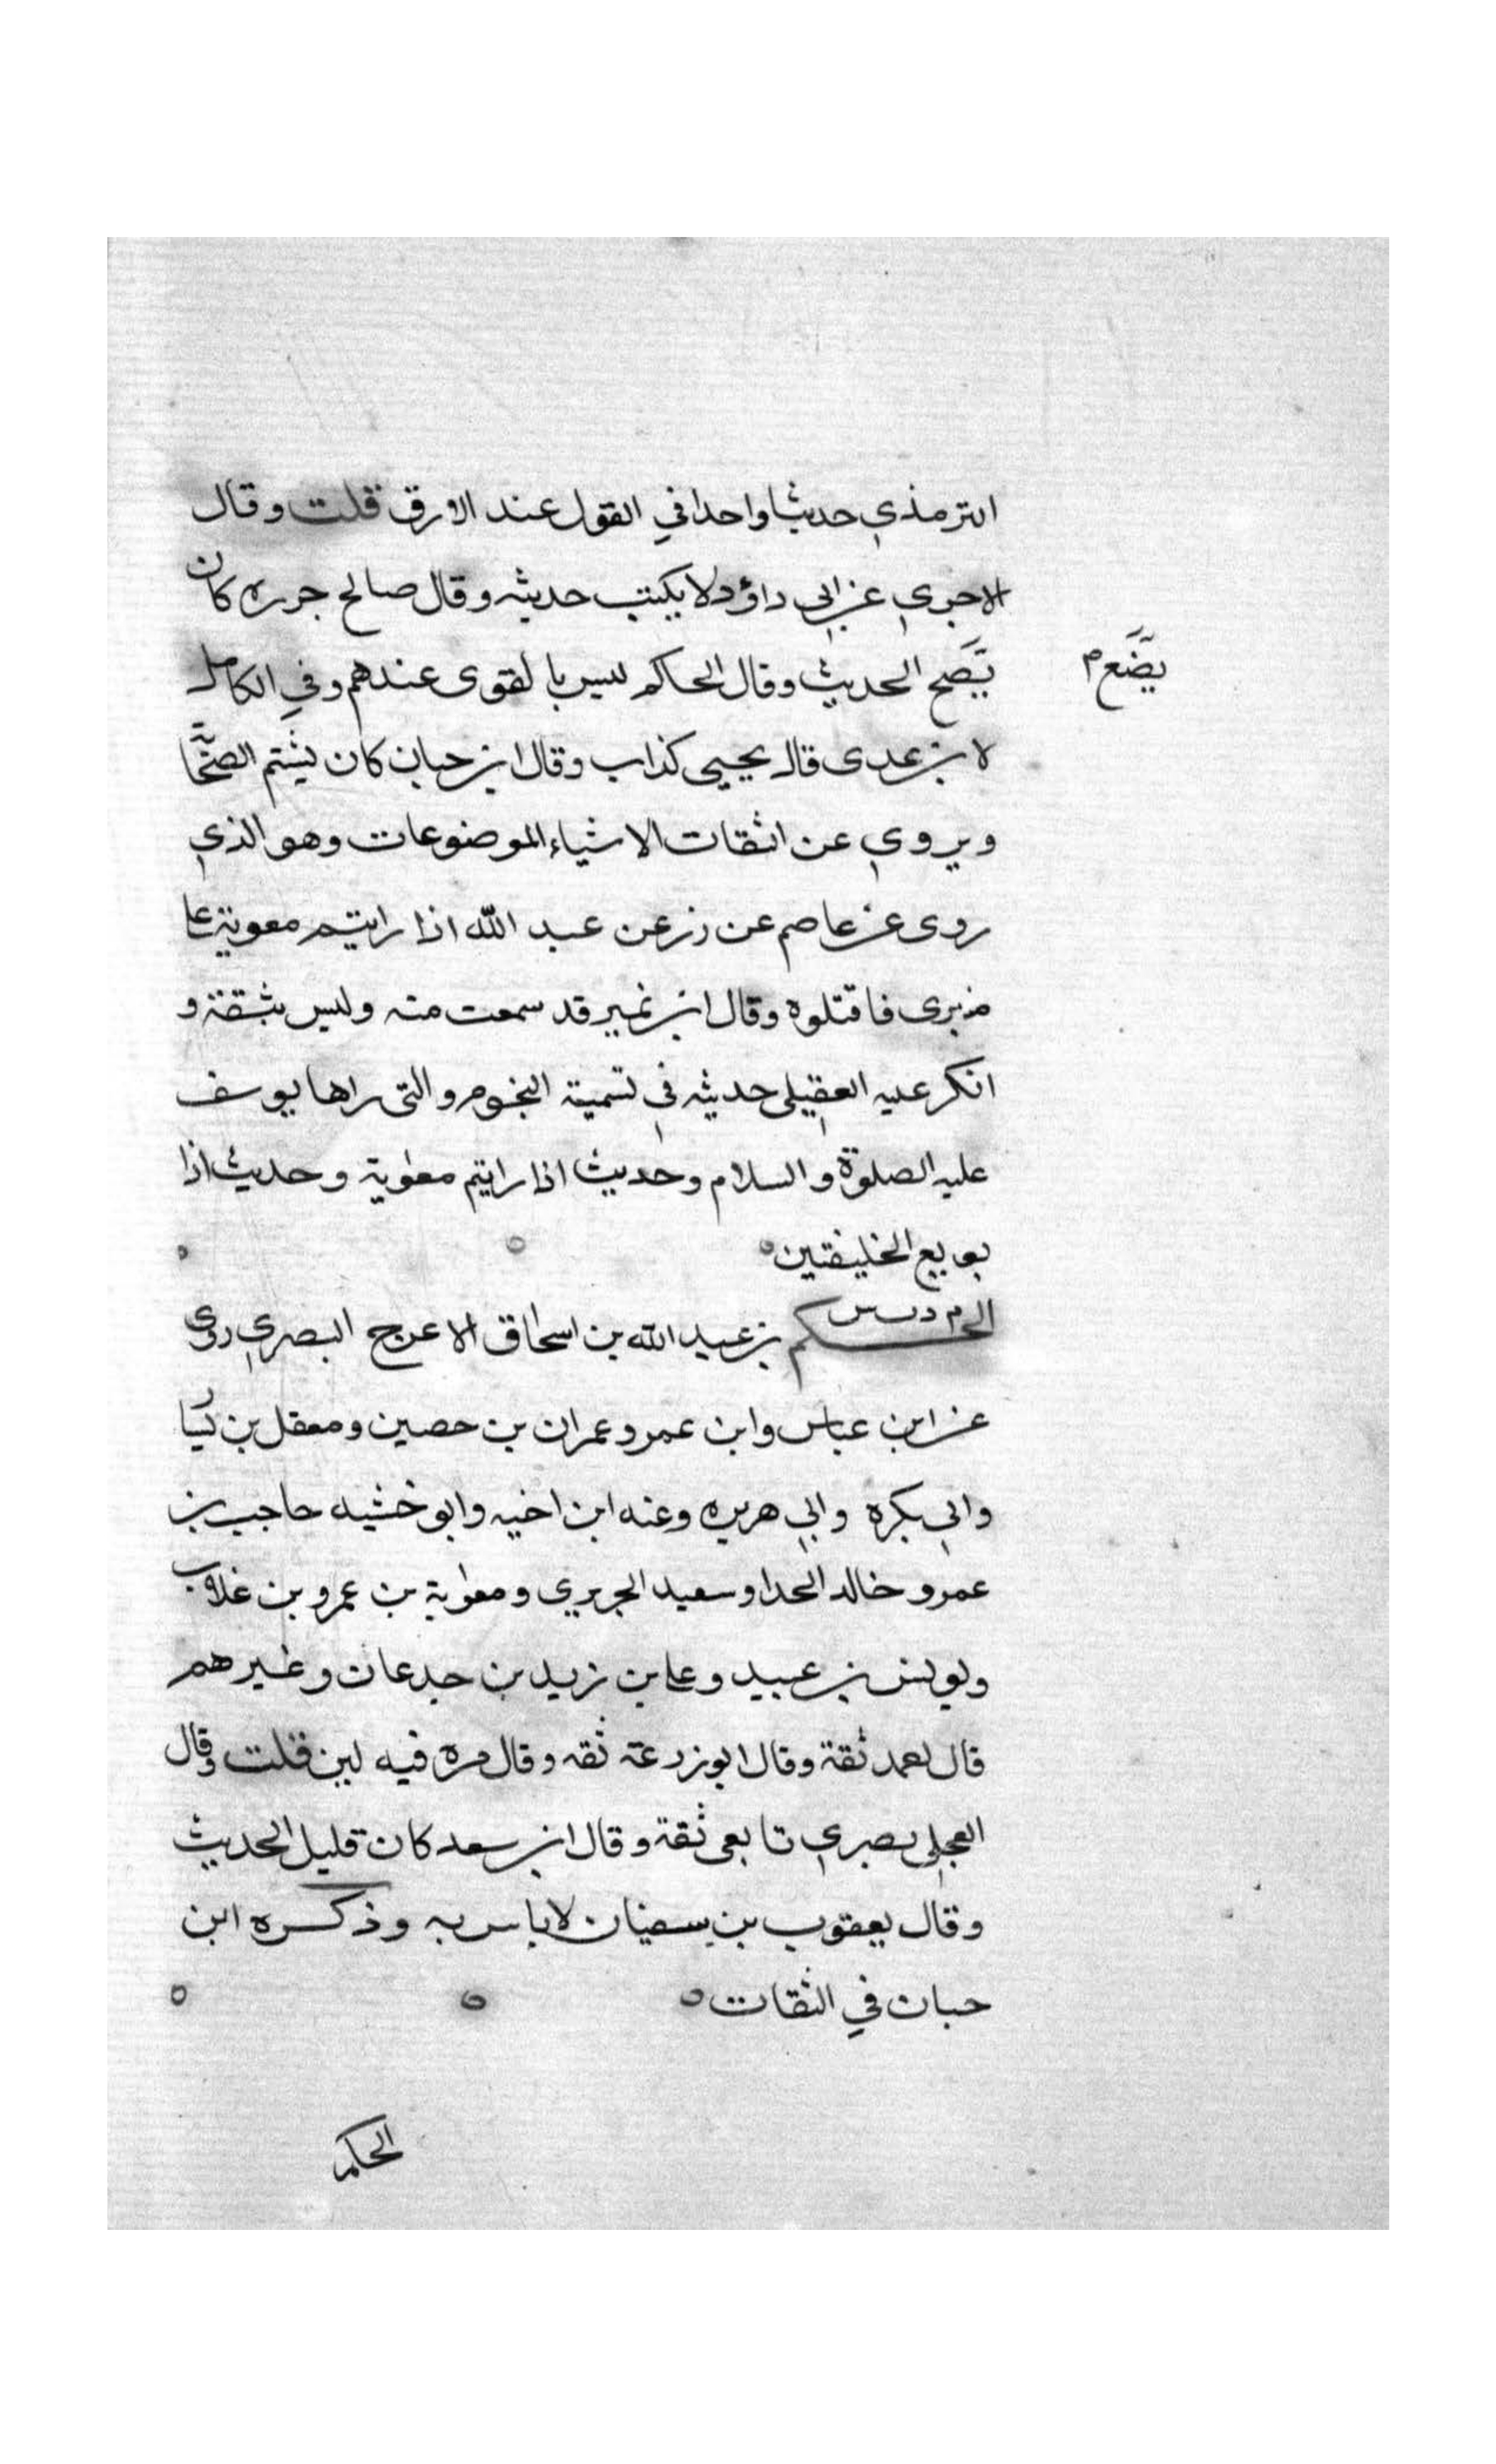 الترمذي حديثا واحدا في القول عند الارق قلت وقال
الاجري عن ابي داؤد لا يكتب حديثه وقال صالح جزره كان
يضع م
يصح الحديث وقال الحاكم ليس بالقوى عندهم وفي الكامل
لابن عدى قال يحيى كذاب وقال ابن حبان كان يشتم الصحا
ويروي عن الثقات الاشياء الموضوعات وهو الذي
روى عن عاصم عن زر عن عبد الله اذا رايتم معوية على
منبرى فاقتلوه وقال ابن نمير قد سمعت منه وليس بثقة و
انكر عليه العقيلى حديثه في تسمية النجوم والتى راها يوسف
عليه الصلوة والسلام وحديث اذا رايتم معوية وحديث اذا
بويع الخليفتين
الحكم م د ت س بن عبد الله بن اسحاق الاعرج البصري روى
عن ابن عباس وابن عمر وعمران بن حصين ومعقل بن يسا
وابي بكره وابي هريره وعنه ابن اخيه وابو خشيه حاجب بن
عمر وخالد الحدا وسعيد الجريري ومعوية بن عمرو بن غلاب
ويونس بن عبيد وعلى بن زيد بن جدعان وغيرهم
قال احمد ثقة وقال ابو زرعة ثقه وقال مره فيه لين قلت وقال
العجلي بصري تابعى ثقة وقال ابن سعد كان قليل الحديث
وقال يعقوب بن سفيان لا باس به وذكره ابن
حبان في الثقات
الحكم